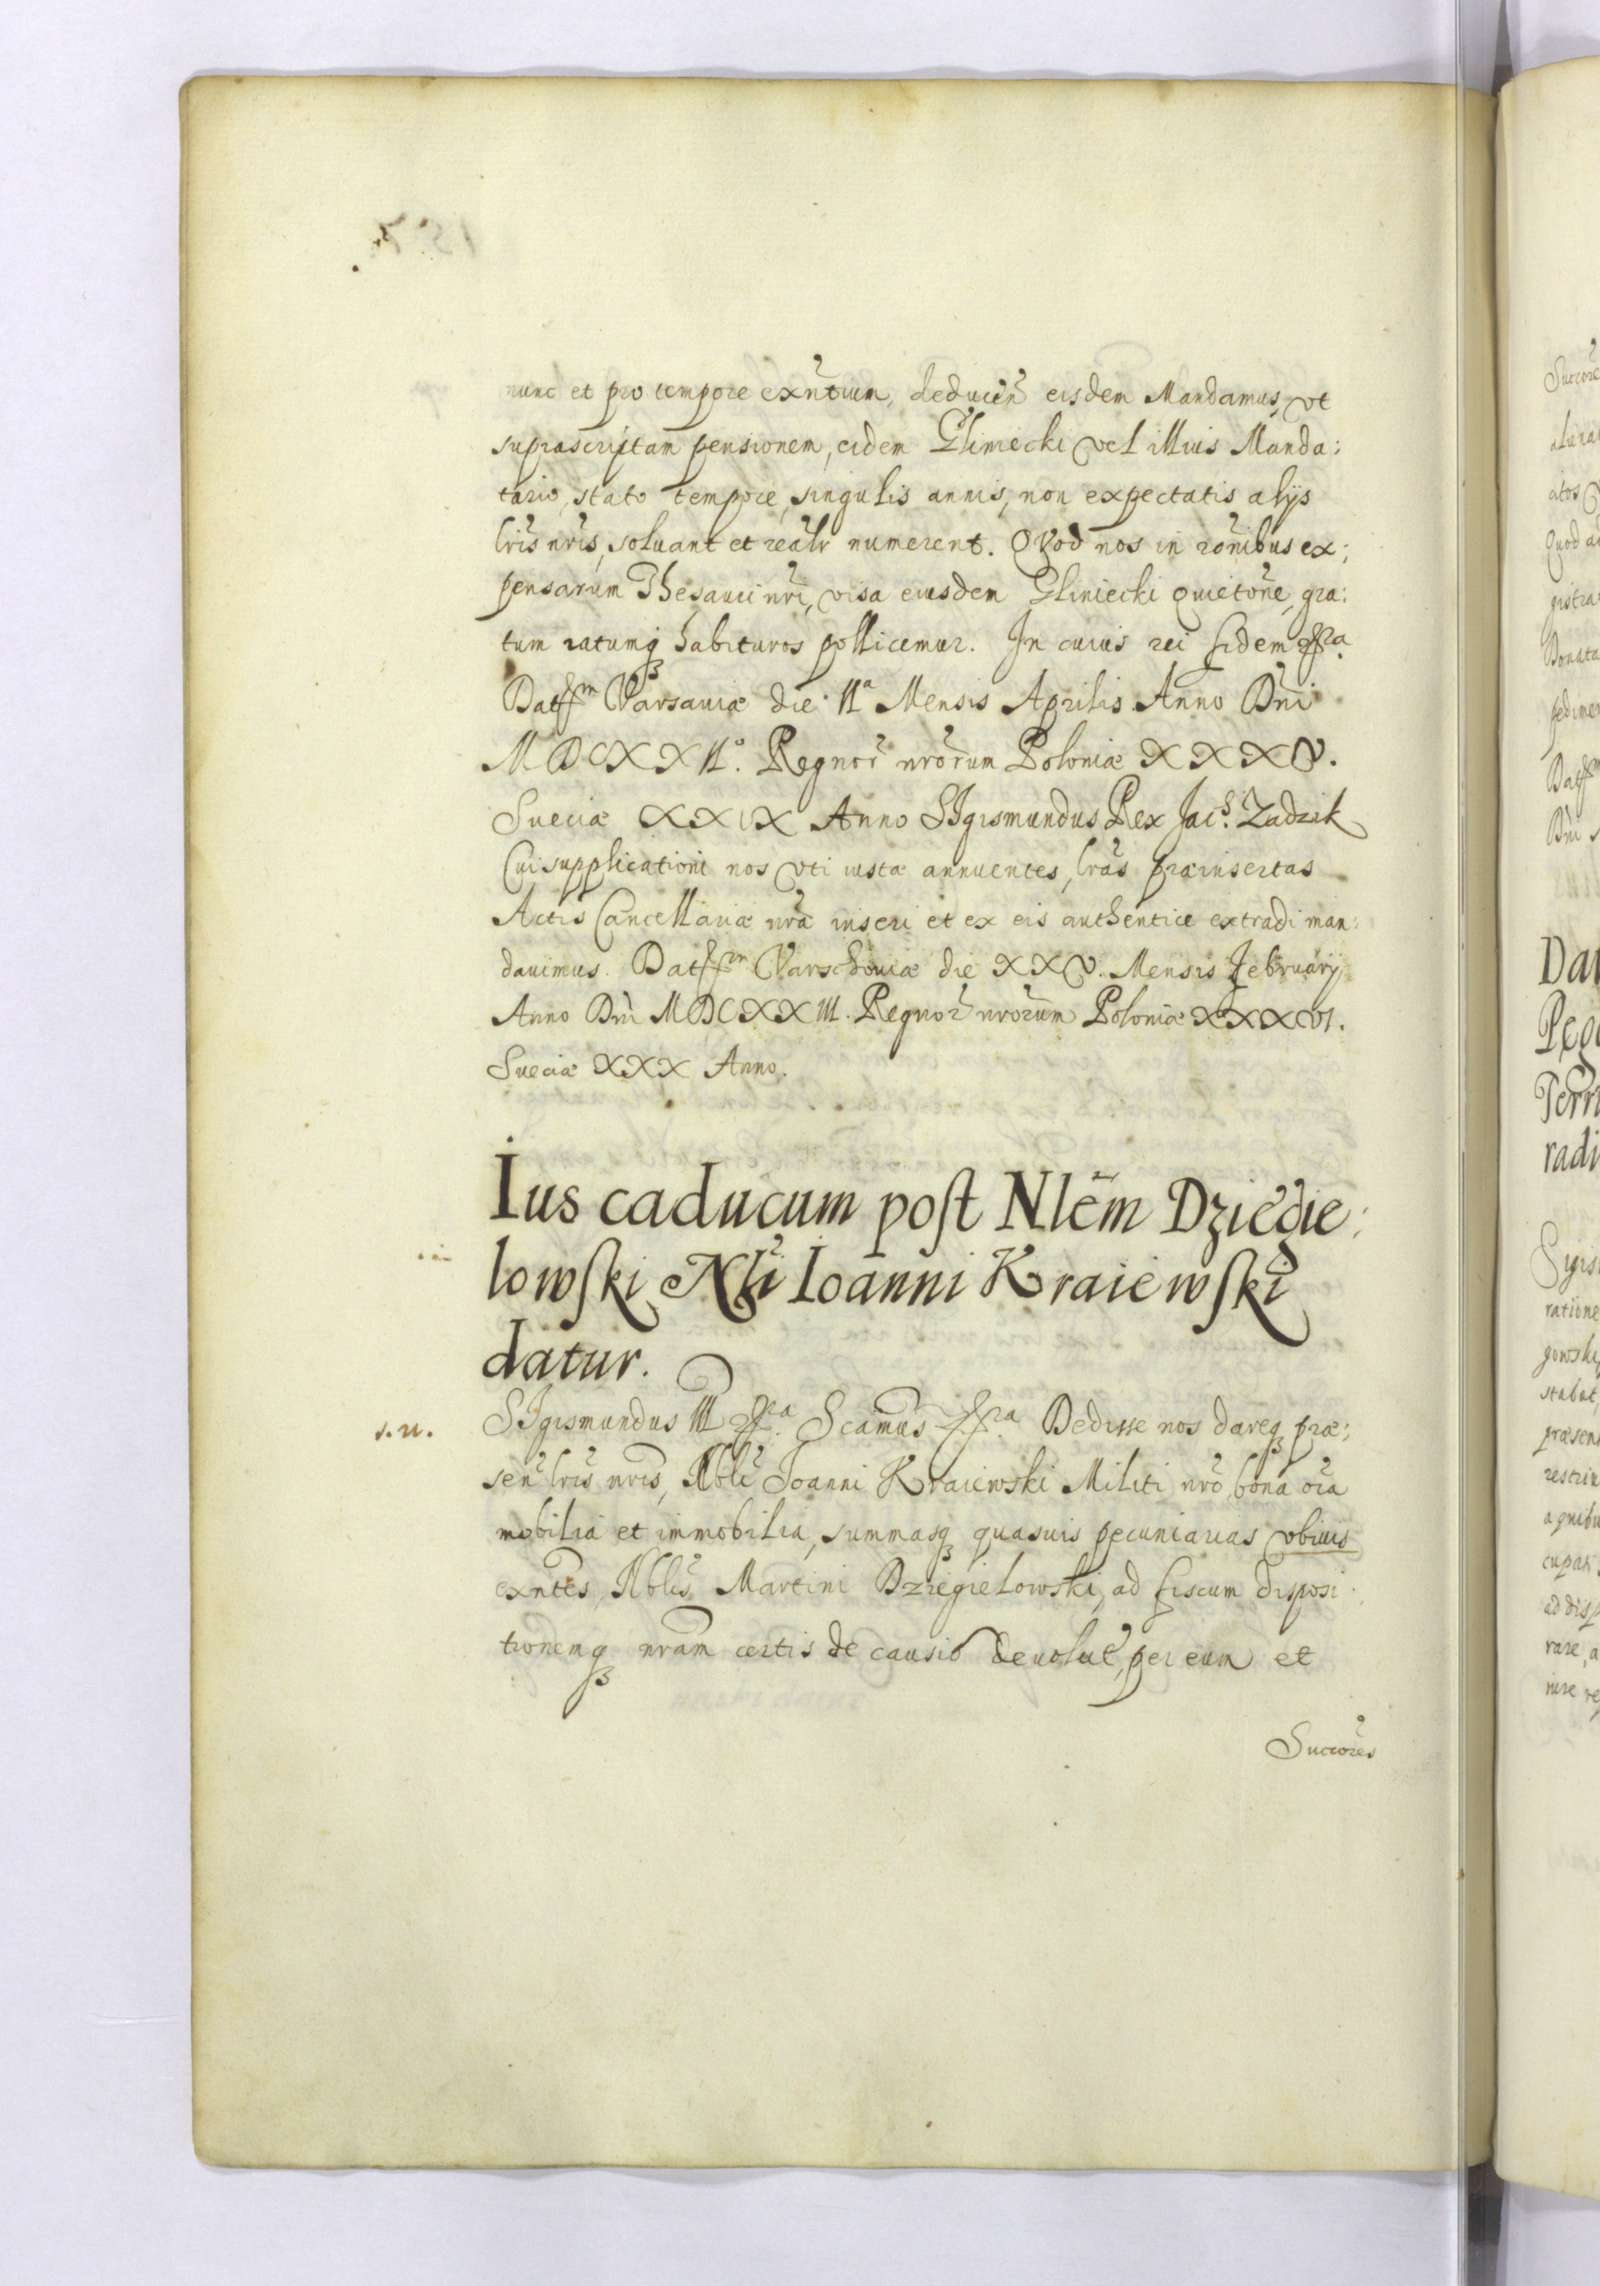 nunc et pro tempore exñtium, deducẽn eisdem Mandamus, vt
suprascriptam pensionem, eidem Gliniecki vel illius Manda:
tario, stato tempore, singulis annis, non expectatis alijs
lris nris, soluant et realr numerent. Quod nos in ronibus ex:
pensarum Thesauri nri, visa eiusdem Gliniecki quietone, gra:
tum ratumq habituros pollicemur. In cuius rei fidem
Varsauiæ die IIa Mensis Aprilis Anno Dni
MDCXXIIo. Regnor nrorum Poloniæ XXXV.
Sueciæ XXIX Anno SIgismundus Rex Jacs. Zadzik
Cui supplicationi nos vti iustæ annuentes, lras præinsertas
Actis Cancellariæ nræ inseri et ex eis authentice extradi man:
dauimus. Varschouiæ die XXV. Mensis Februarij
Anno Dni MDCXXIII. Regnor nrorum Poloniæ XXXVI.
Sueciæ XXX Anno.
Ius caducum post Nlem Dziedie:
lowski Nli Ioanni Kraiewski
datur.
s.n.
SIgismundus III Scamus Dedisse nos dareq præ:
sen lris nris, Nbli Joanni Kraiewski Militi nro, bona oia
mobilia et immobilia, summasq quasuis pecuniarias vbiuis
exntes, Nblis Martini Dziegielowski, ad fiscum disposi
tionemq nram certis de causis deuolut, per eum et
Succores